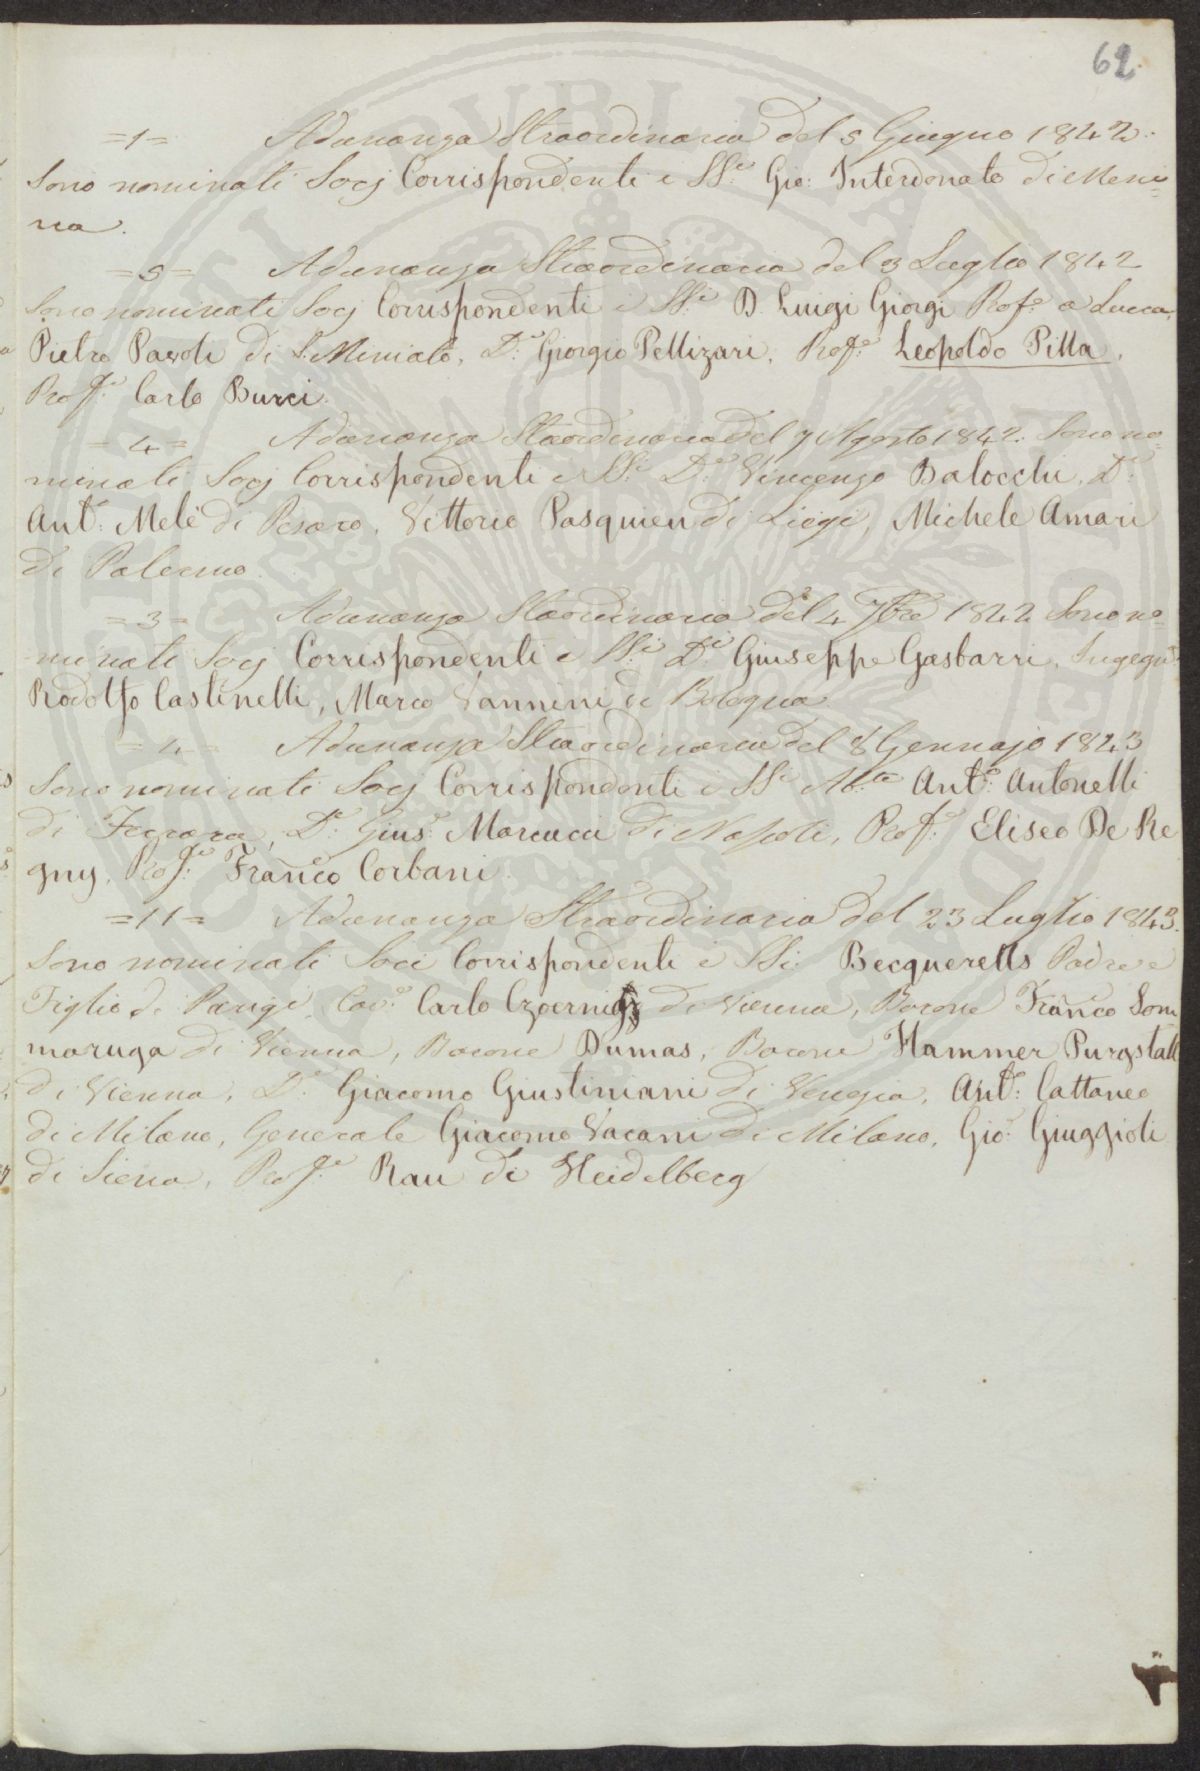 62
=1= Adunanza Straordinaria del 5 Giugno 1842.
Sono nominati Socj Corrispondenti i SS.i Gio: Interdonato di Messi=
na.
=5= Adunanza Straordinaria del 3 Luglio 1842
Sono nominati Socj Corrispondenti i SS.i D. Luigi Giorgi Prof.e a Lucca,
Pietro Pavoli di S. Miniato, D.r Giorgio Pellizari, Prof.e Leopoldo Pilla,
Prof.e Carlo Burci.
=4= Adunanza Straordinaria del 7 Agosto 1842. Sono no=
minati Socj Corrispondenti i SS.i D.r Vincenzo Balocchi, D.r
Ant.o Melè di Pesaro, Vittorio Pasquieu di Liegi, Michele Amari
di Palermo.
=3= Adunanza Straordinaria del 4 7bre 1842 Sono no=
minati Socj Corrispondenti i SS.i D.r Giuseppe Gasbarri, Ingegn.e
Rodolfo Castinelli, Marco Vannini di Bologna.
=4= Adunanza Straordinaria del 8 Gennajo 1843
Sono nominati Socj Corrispondenti i SS.i Ant.o Antonelli
di Ferrara, D.r Gius.e Marcucci di Napoli, Prof.e Eliseo De Re
gny, Prof.e Franco Corbani.
=11= Adunanza Straordinaria del 23 Luglio 1843.
Sono nominati Soci Corrispondenti i SS.i Becquerells Padre e
Figlio di Parigi, Cav.e Carlo Czoernig di Vienna, Barone Franco Som
maruga di Vienna, Barone Dumas, Barone Hammer Purgstall
di Vienna, D.r Giacomo Giustiniani di Venezia, Ant.o Cattaneo
di Milano, Generale Giacomo Vacani di Milano, Gio: Giuggioli
di Siena, Prof.e Rau di Heidelberg